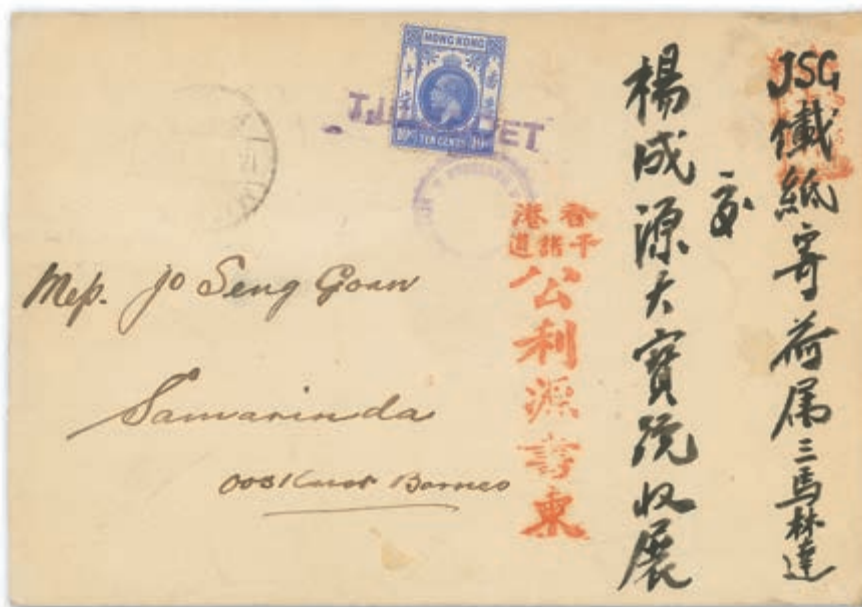 HONG KONG
TEN CENTS
JSG儎紙寄荷属三馬林達
交
楊成源大寶號收展
香港
干諾道
公利源書柬
Mess. Jo Seng Goan
Samarinda
Oostkust Borneo